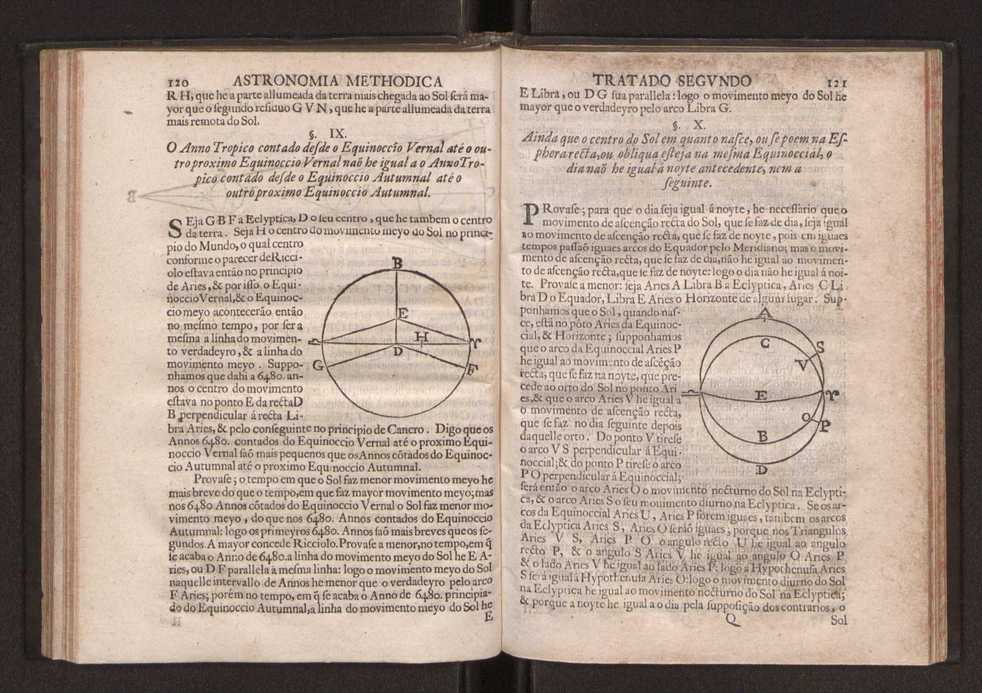 120 ASTRONOMIA METHODICA
R H, que he a parte allumeada da terra mais chegada ao Sol será ma-
yor que o segundo residuo G V N, que he a parte allumeada da terra
mais remota do Sol.
§. IX.
O Anno Tropico contado desde o Equinoccio Vernal até o ou-
tro proximo Equinoccio Vernal naõ he igual a o Anno Tro-
pico contado desde o Equinoccio Autumnal até o
outro proximo Equinoccio Autumnal.
SEja G B F a Eclyptica, D o seu centro, que he tambem o centro
da terra. Seja H o centro do movimento meyo do Sol no princi-
pio do Mundo, o qual centro
conforme o parecer de Ricci-
olo estava então no principio
de Aries, & por isso o Equi-
noccio Vernal, & o Equinoc-
cio meyo acontecerão então
no mesmo tempo, por ser a
mesma a linha do movimen-
to verdadeyro, & a linha do
movimento meyo. Suppo-
nhamos que dahi a 6480. an-
nos o centro do movimento
estava no ponto E da recta D
B perpendicular á recta Li-
bra Aries, & pelo conseguinte no principio de Cancro. Digo que os
Annos 6480. contados do Equinoccio Vernal até o proximo Equi-
noccio Vernal saõ mais pequenos que os Annos cõtados do Equinoc-
cio Autumnal até o proximo Equinoccio Autumnal.
Provase; o tempo em que o Sol faz menor movimento meyo he
mais breve do que o tempo, em que faz mayor movimento meyo; mas
nos 6480 Annos cõtados do Equinoccio Vernal o Sol faz menor mo-
vimento meyo, do que nos 6480. Annos contados do Equinoccio
Autumnal: logo os primeyros 6480. Annos saõ mais breves que os se-
gundos. A mayor concede Ricciolo. Provase a menor, no tempo, em q̃
se acaba o Anno de 6480. a linha do movimento meyo do Sol he E A-
ries, ou D F parallela à mesma linha: logo o movimento meyo do Sol
naquelle intervallo de Annos he menor que o verdadeyro pelo arco
F Aries; porém no tempo, em q̃ se acaba o Anno de 6480. principia-
do do Equinoccio Autumnal, a linha do movimento meyo do Sol he
E
B
E
H
♎
D
♈
G
F
TRATADO SEGVNDO 121
E Libra, ou D G sua parallela: logo o movimento meyo do Sol he
mayor que o verdadeyro pelo arco Libra G.
§. X.
Ainda que o centro do Sol em quanto nasce, ou se poem na Es-
phera recta, ou obliqua esteja na mesma Equinoccial, o
dia naõ he igual á noyte antecedente, nem a
seguinte.
PRovase; para que o dia seja igual á noyte, he necessario que o
movimento de ascenção recta do Sol, que se faz de dia, seja igual
ao movimento de ascenção recta, que se faz de noyte, pois em iguaes
tempos passaõ iguaes arcos do Equador pelo Meridiano; mas o movi-
mento de ascenção recta, que se faz de dia, não he igual ao movimen-
to de ascenção recta, que se faz de noyte: logo o dia não he igual á noi-
te. Provase a menor: seja Aries A Libra B a Eclyptica, Aries C Li-
bra D o Equador, Libra E Aries o Horizonte de algum lugar. Sup-
ponhamos que o Sol, quando nas-
ce, está no põto Aries da Equinoc-
cial, & Horizonte; supponhamos
que o arco da Equinoccial Aries P
he igual ao movimento de ascẽção
recta, que se faz na noyte, que pre-
cede ao orto do Sol no ponto Ari
es, & que o arco Aries V he igual a
o movimento de ascenção recta,
que se faz no dia seguinte depois
daquelle orto. Do ponto V tirese
o arco V S perpendicular á Equi-
noccial; & do ponto P tirese o arco
P O perpendicular á Equinoccial;
será então o arco Aries O o movimento nocturno do Sol na Eclypti-
ca, & o arco Aries S o seu movimento diurno na Eclyptica. Se os ar-
cos da Equinoccial Aries U, Aries P forem iguaes, tambem os arcos
da Eclyptica Aries S, Aries O serão iguaes; porque nos Triangulos
Aries V S, Aries P O o angulo recto U he igual ao angulo
recto P, & o angulo S Aries V he igual ao angulo O Aries P
& o lado Aries V he igual ao lado Aries P: logo a Hypothenusa Aries
S será igual á Hypothenusa Aries O: logo o movimento diurno do Sol
na Eclyptica he igual ao movimento nocturno do Sol na Eclyptica;
& porque a noyte he igual a o dia pela supposição dos contrarios, o
Q Sol
A
C
S
V
♎
E
♈
O
P
B
D